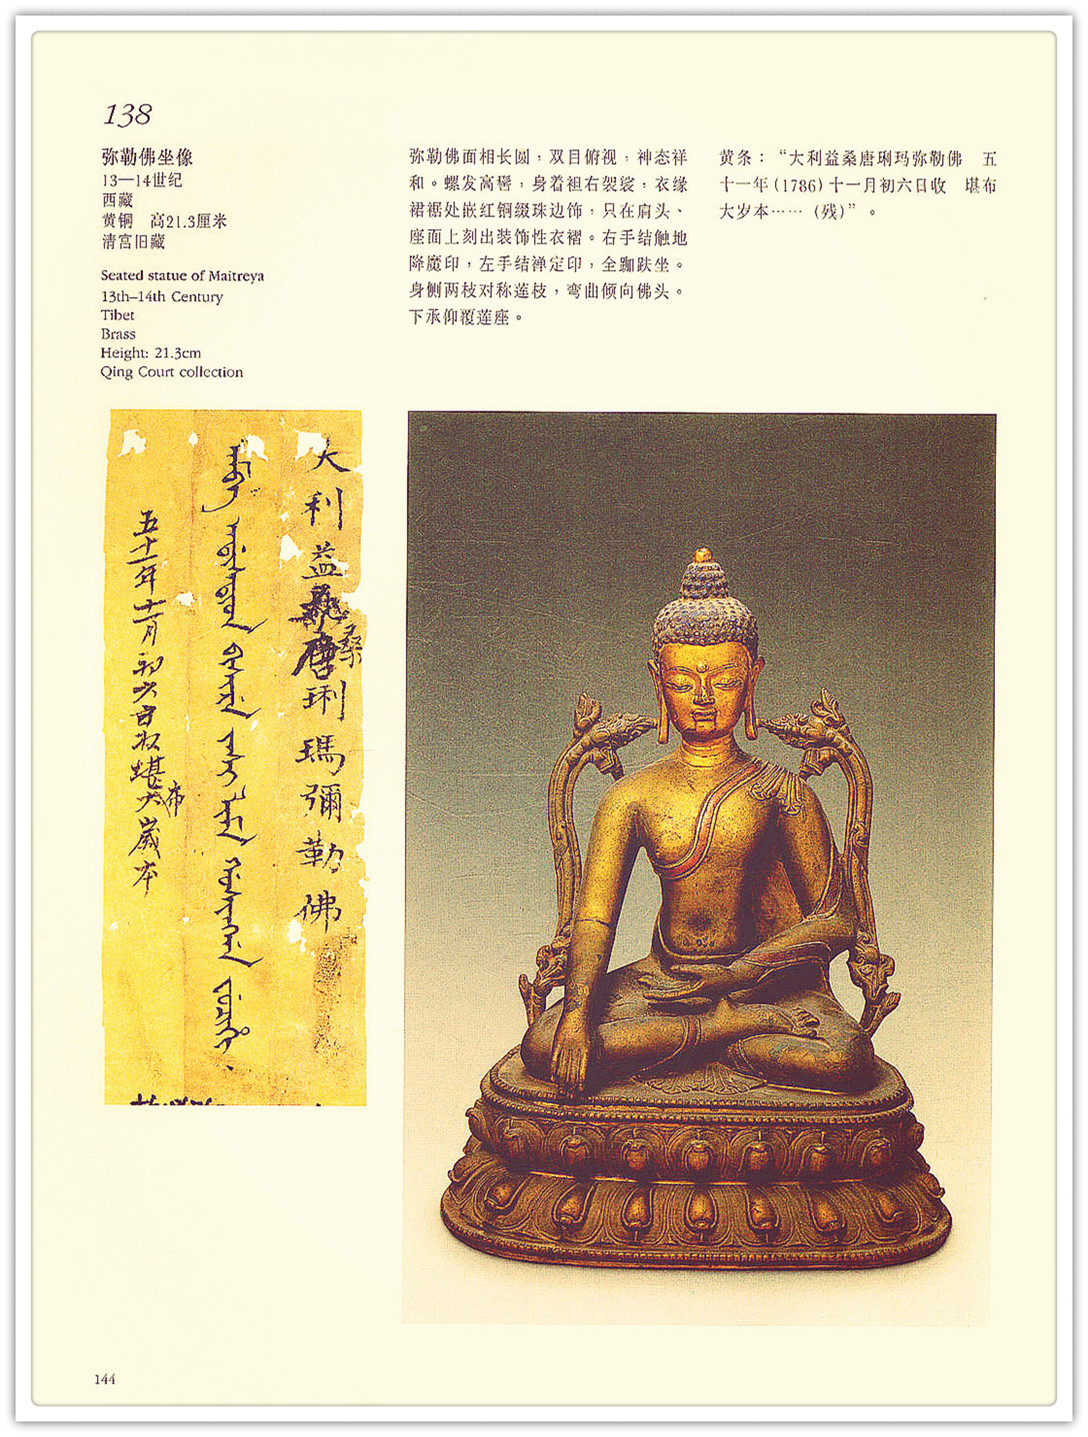 138
弥勒佛坐像
13—14世纪
西藏
黄铜　高21.3厘米
清宫旧藏
Seated statue of Maitreya
13th–14th Century
Tibet
Brass
Height: 21.3cm
Qing Court collection
弥勒佛面相长圆，双目俯视，神态祥
和。螺发高髻，身着袒右袈裟，衣缘
裙裾处嵌红铜缀珠边饰，只在肩头、
座面上刻出装饰性衣褶。右手结触地
降魔印，左手结禅定印，全跏趺坐。
身侧两枝对称莲枝，弯曲倾向佛头。
下承仰覆莲座。
黄条：“大利益桑唐琍玛弥勒佛　五
十一年(1786)十一月初六日收　堪布
大岁本……（残）”。
大利益桑唐琍瑪彌勒佛
五十一年十一月初六日收堪布大歲本
144